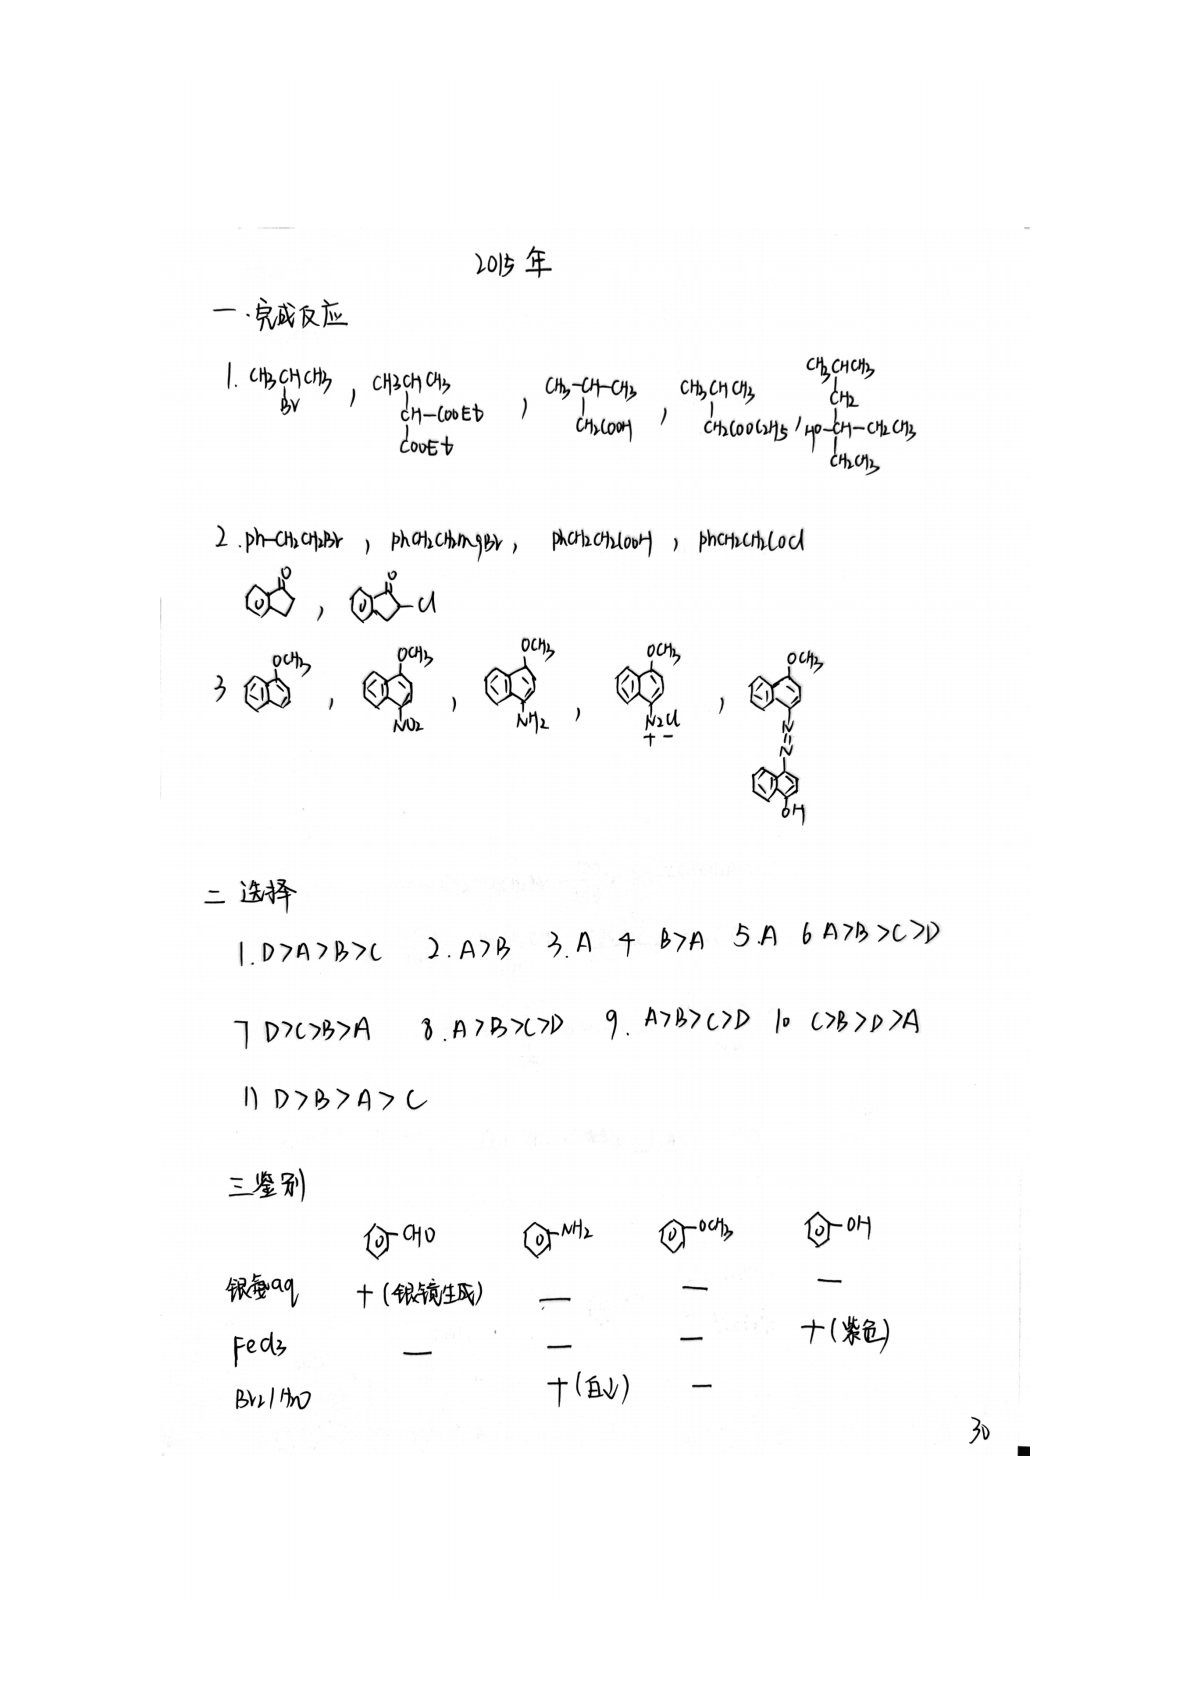 2015年
一.完成反应
1. CH3CHCH3 , CH3CHCH3 , CH3-CH-CH3 , CH3CHCH3 , CH3CHCH3
Br CH-COOEt CH2COOH CH2COOC2H5 CH2
COOEt HO-CH-CH2CH3
CH2CH3
2. ph-CH2CH2Br , phCH2CH2MgBr , phCH2CH2COOH , phCH2CH2COCl
O , O Cl
3 OCH3 , OCH3 , OCH3 , OCH3 , OCH3
NO2 NH2 N2Cl N
+ - N
OH
二 选择
1. D>A>B>C 2. A>B 3. A 4 B>A 5. A 6 A>B>C>D
7 D>C>B>A 8. A>B>C>D 9. A>B>C>D 10 C>B>D>A
11 D>B>A>C
三鉴别
CHO NH2 OCH3 OH
银氨aq +(银镜生成) — — —
FeCl3 — — — +(紫色)
Br2/H2O +(白↓) —
30